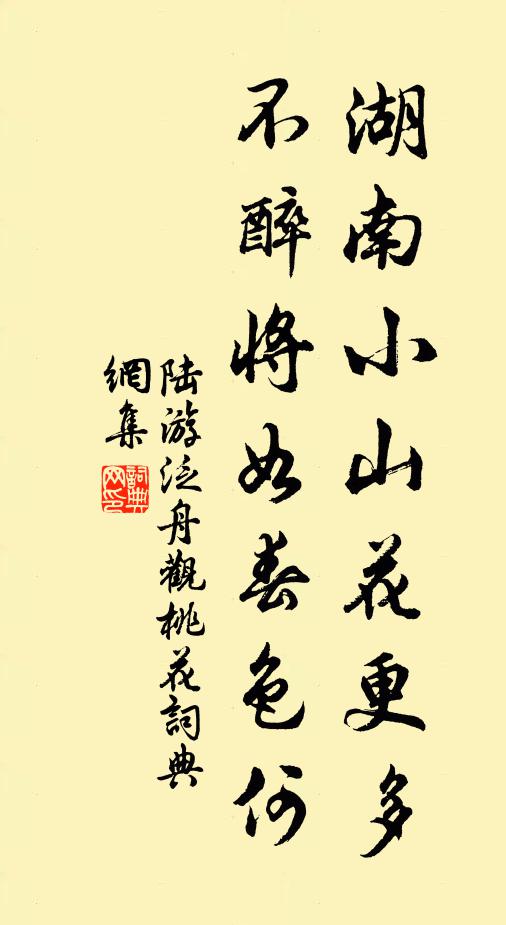 湖南小山花更多
不醉将如春色何
陆游泛舟觀桃花詞典
網集
詞典网印